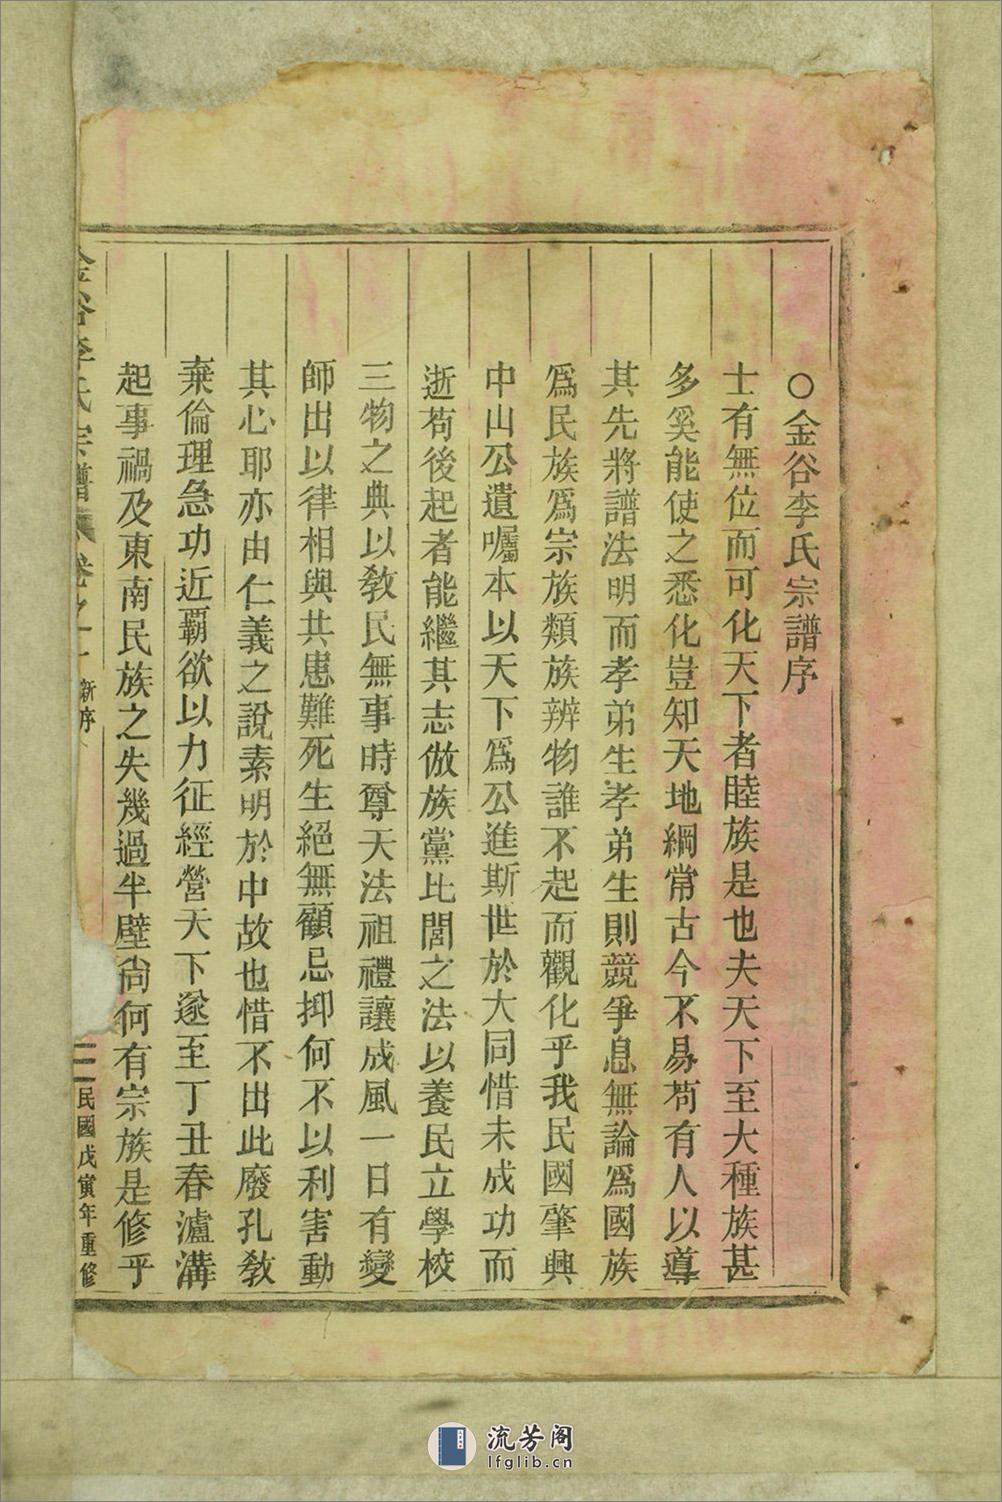 ○金谷李氏宗譜序
士有無位而可化天下者睦族是也夫天下至大種族甚
多奚能使之悉化豈知天地綱常古今不易苟有人以導
其先將譜法明而孝弟生孝弟生則競爭息無論爲國族
爲民族爲宗族類族辨物誰不起而觀化乎我民國肇興
中山公遺囑本以天下爲公進斯世於大同惜未成功而
逝苟後起者能繼其志倣族黨比閭之法以養民立學校
三物之典以敎民無事時尊天法祖禮讓成風一日有變
師出以律相與共患難死生絕無顧忌抑何不以利害動
其心耶亦由仁義之說素明於中故也惜不出此廢孔敎
棄倫理急功近覇欲以力征經營天下遂至丁丑春瀘溝
起事禍及東南民族之失幾過半壁尙何有宗族是修乎
金谷李氏宗譜 卷之一 新序 二 民國戊寅年重修
流芳阁
lfglib.cn